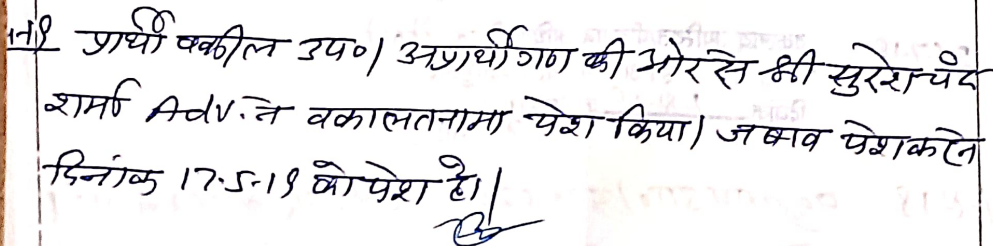 प्रार्थी वकील उप०। अप्रार्थीगण की ओर से श्री सुरेश चंद
शर्मा Adv. ने वकालतनामा पेश किया। जबाव पेश करने
दिनांक 17-5-19 को पेश हो।